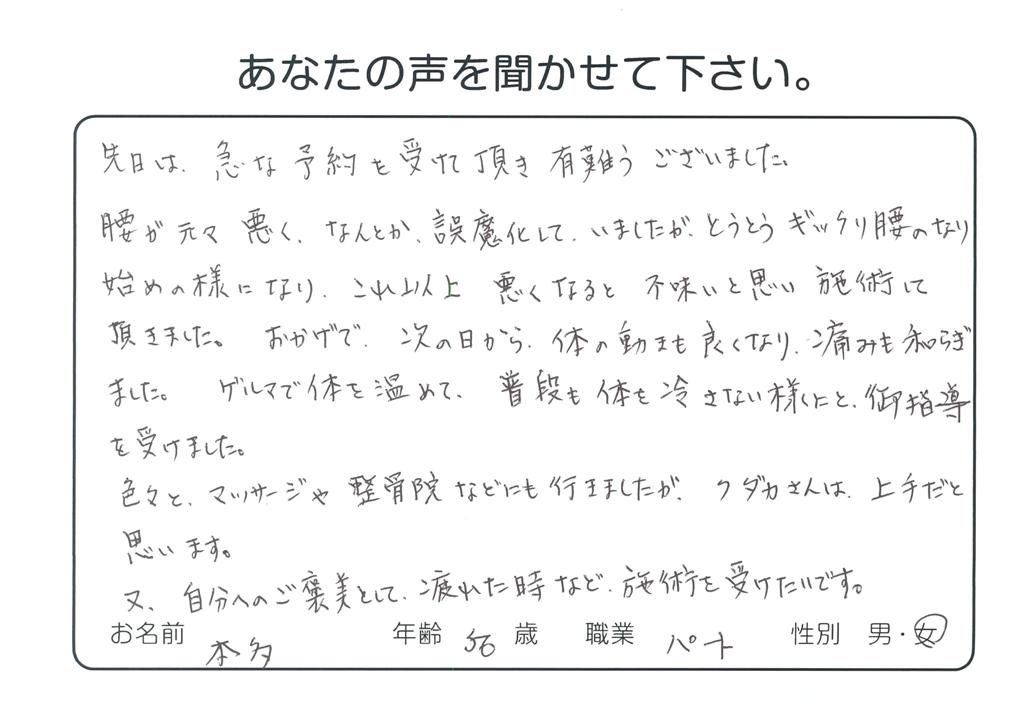 あなたの声を聞かせて下さい。
先日は、急な予約を受けて頂き有難うございました。
腰が元々悪く、なんとか、誤魔化して、いましたが、とうとうギックリ腰のなり
始めの様になり、これ以上 悪くなると不味いと思い施術して
頂きました。 おかげで、次の日から、体の動きも良くなり、痛みも和らぎ
ました。 ゲルマで体を温めて、普段も体を冷さない様にと、御指導
を受けました。
色々と、マッサージや整骨院などにも行きましたが、クダカさんは、上手だと
思います。
又、自分へのご褒美として、疲れた時など、施術を受けたいです。
お名前 本多 年齢 56 歳 職業 パート 性別 男・女